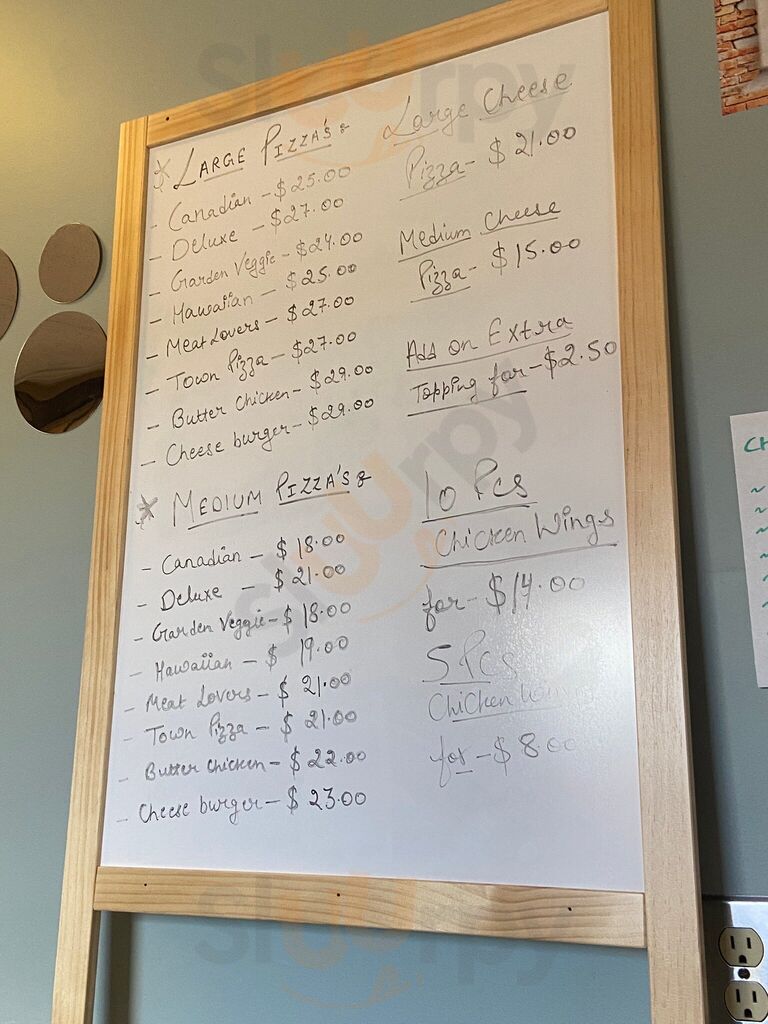 * LARGE PIZZA'S :
- Canadian - $25.00
- Deluxe - $27.00
- Garden Veggie - $24.00
- Hawaiian - $25.00
- Meat Lovers - $27.00
- Town Pizza - $27.00
- Butter Chicken - $29.00
- Cheese burger - $29.00
* MEDIUM PIZZA'S :
- Canadian - $18.00
- Deluxe - $21.00
- Garden Veggie - $18.00
- Hawaiian - $19.00
- Meat Lovers - $21.00
- Town Pizza - $21.00
- Butter Chicken - $22.00
- Cheese burger - $23.00
Large Cheese
Pizza - $21.00
Medium Cheese
Pizza - $15.00
Add on Extra
Topping for - $2.50
10 Pcs
Chicken Wings
for - $14.00
5 Pcs
Chicken
for - $8.00
Slurrpy
Slurrpy
Slurrpy
CH